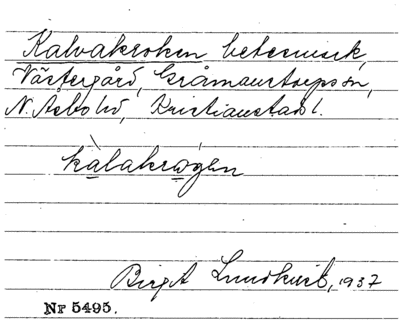 Kalvakroken betesmark,
Västergård, Gråmanstorps sn,
N. Åsbo hd, Kristianstads l.
kàlakrógen
Birgit Lundkvist, 1937
Nr 5495.